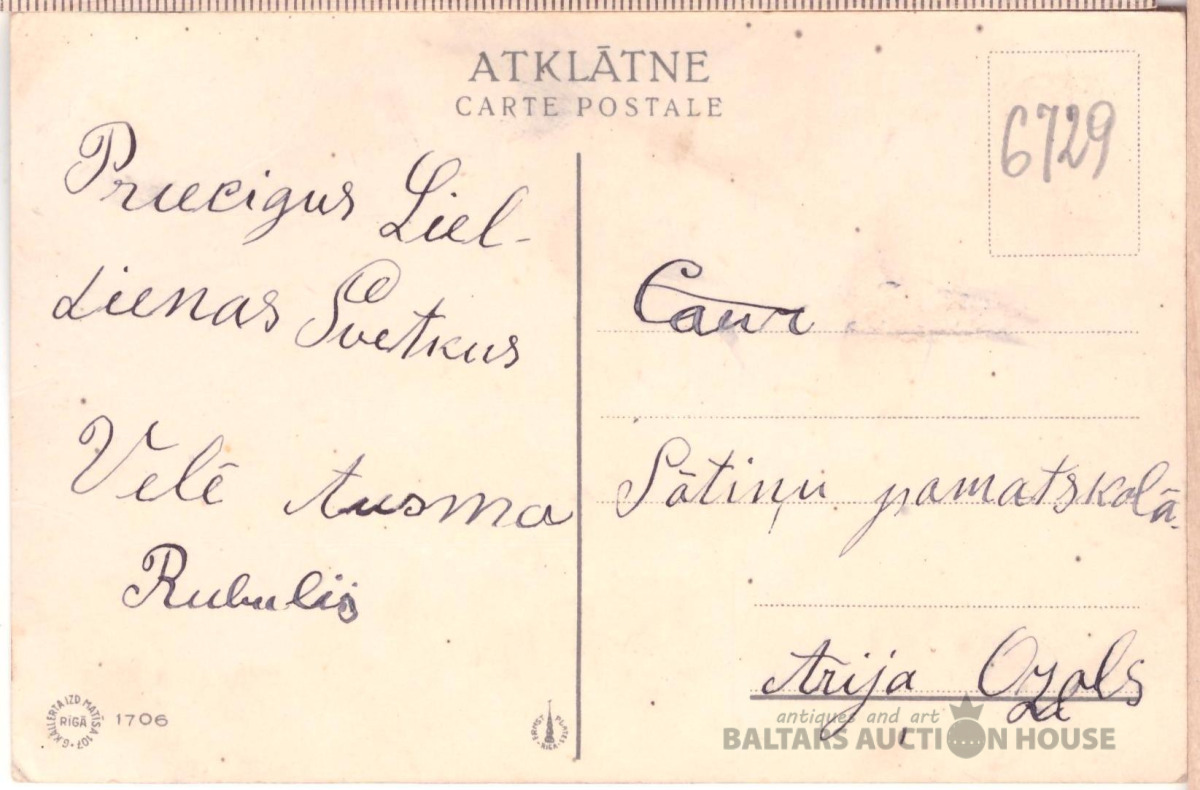 ATKLĀTNE
CARTE POSTALE
6729
Priecigus Liel-
dienas Svētkus
Vēlē Ausma
Rubulis
Caur
Sātiņu pamatskolā.
Arija Ozols
G. KALLERTA IZD MATĪSA 107
RĪGĀ
1706
ERNST PLATES
RIGA
antiques and art
BALTARS AUCTION HOUSE